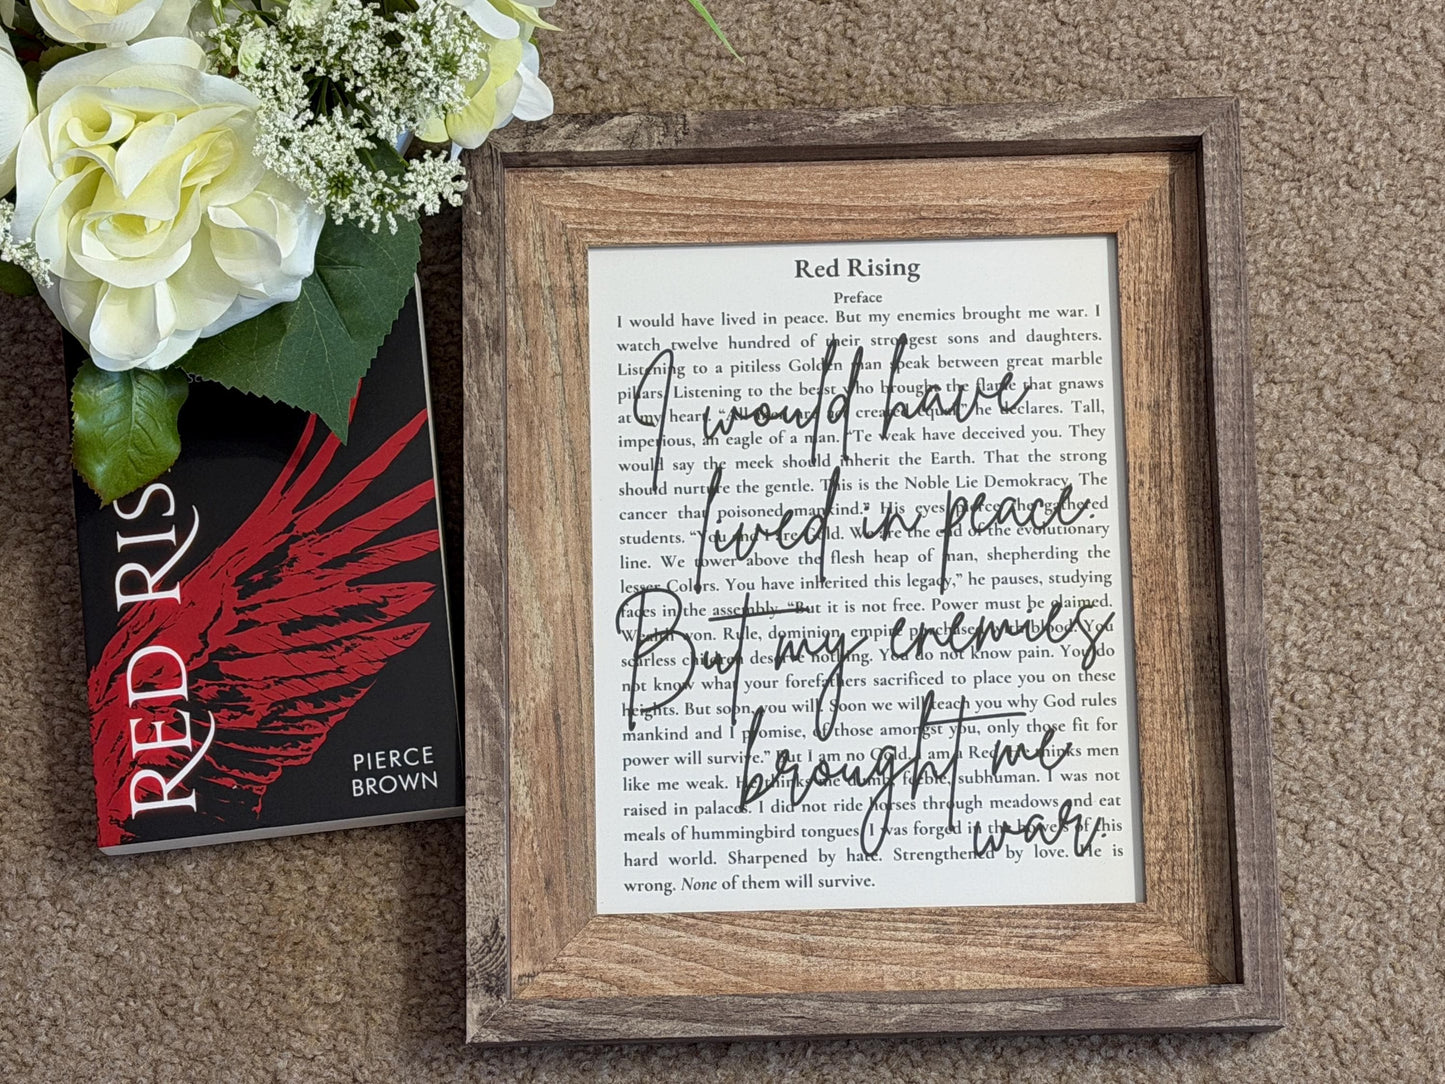 RED RIS
PIERCE
BROWN
Red Rising
Preface
I would have lived in peace. But my enemies brought me war. I
watch twelve hundred of their strongest sons and daughters.
Listening to a pitiless Golden man speak between great marble
pillars. Listening to the beast who brought the flame that gnaws
at my heart. “All men are not created equal,” he declares. Tall,
imperious, an eagle of a man. “Te weak have deceived you. They
would say the meek should inherit the Earth. That the strong
should nurture the gentle. This is the Noble Lie Demokracy. The
cancer that poisoned mankind.” His eyes pierce the gathered
students. “You and I are Gold. We are the end of the evolutionary
line. We tower above the flesh heap of man, shepherding the
lesser Colors. You have inherited this legacy,” he pauses, studying
faces in the assembly. “But it is not free. Power must be claimed.
Wealth won. Rule, dominion, empire purchased with blood. You
scarless children deserve nothing. You do not know pain. You do
not know what your forefathers sacrificed to place you on these
heights. But soon, you will. Soon we will teach you why God rules
mankind and I promise, of those amongst you, only those fit for
power will survive.” But I am no Gold. I am a Red. He thinks men
like me weak. He thinks me dumb, feeble, subhuman. I was not
raised in palaces. I did not ride horses through meadows and eat
meals of hummingbird tongues. I was forged in the bowels of this
hard world. Sharpened by hate. Strengthened by love. He is
wrong. None of them will survive.
I would have
lived in peace.
But my enemies
brought me
war.